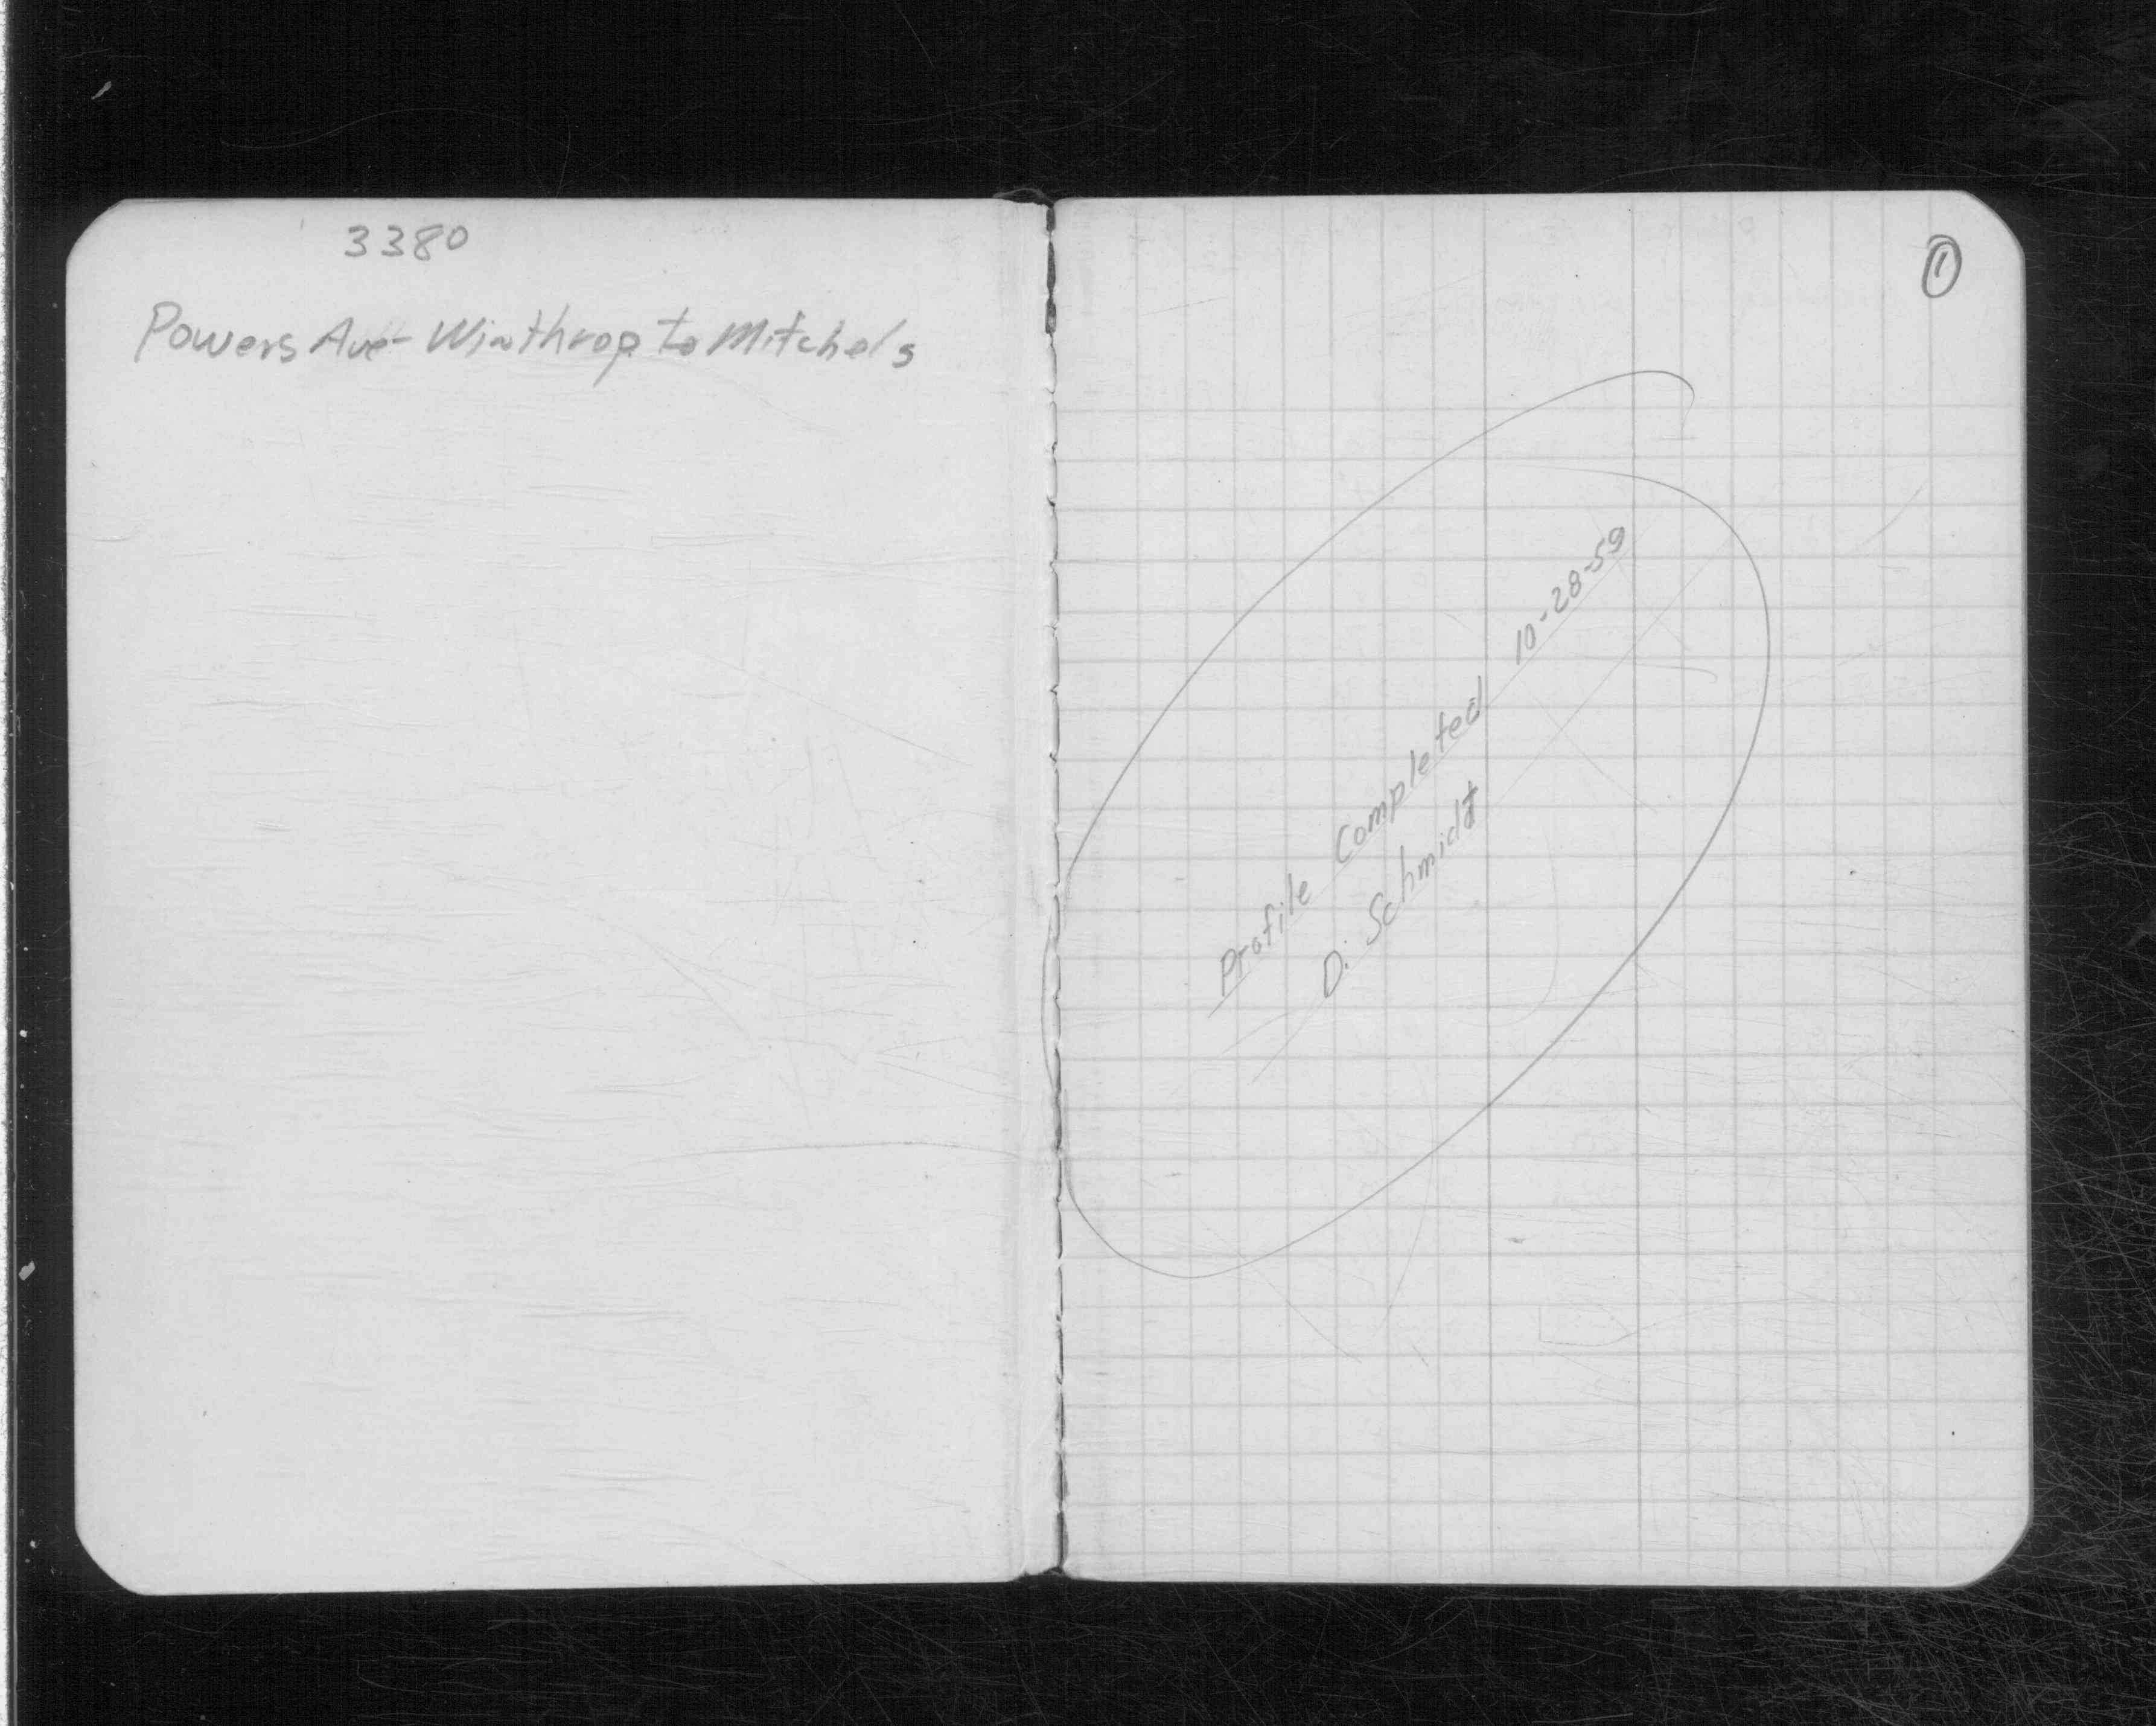 3380
Powers Ave - Winthrop to Mitchels
1
Profile Completed 10-28-59
D. Schmidt